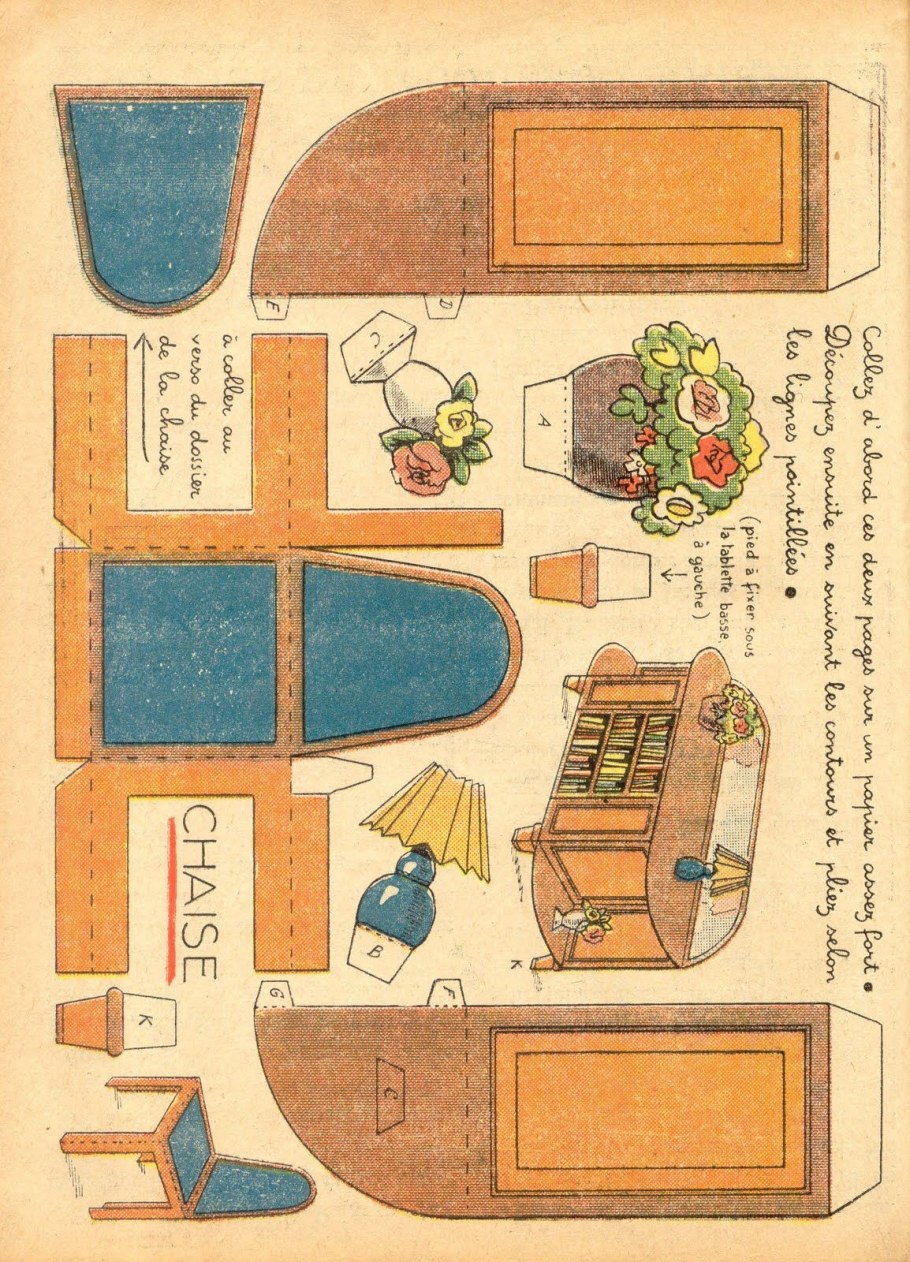 Collez d'abord ces deux pages sur un papier assez fort •
Découpez ensuite en suivant les contours et pliez selon
les lignes pointillées •
(pied à fixer sous
la tablette basse,
à gauche)
à coller au
verso du dossier
de la chaise
CHAISE
E
D
C
A
B
K
G
F
C
K